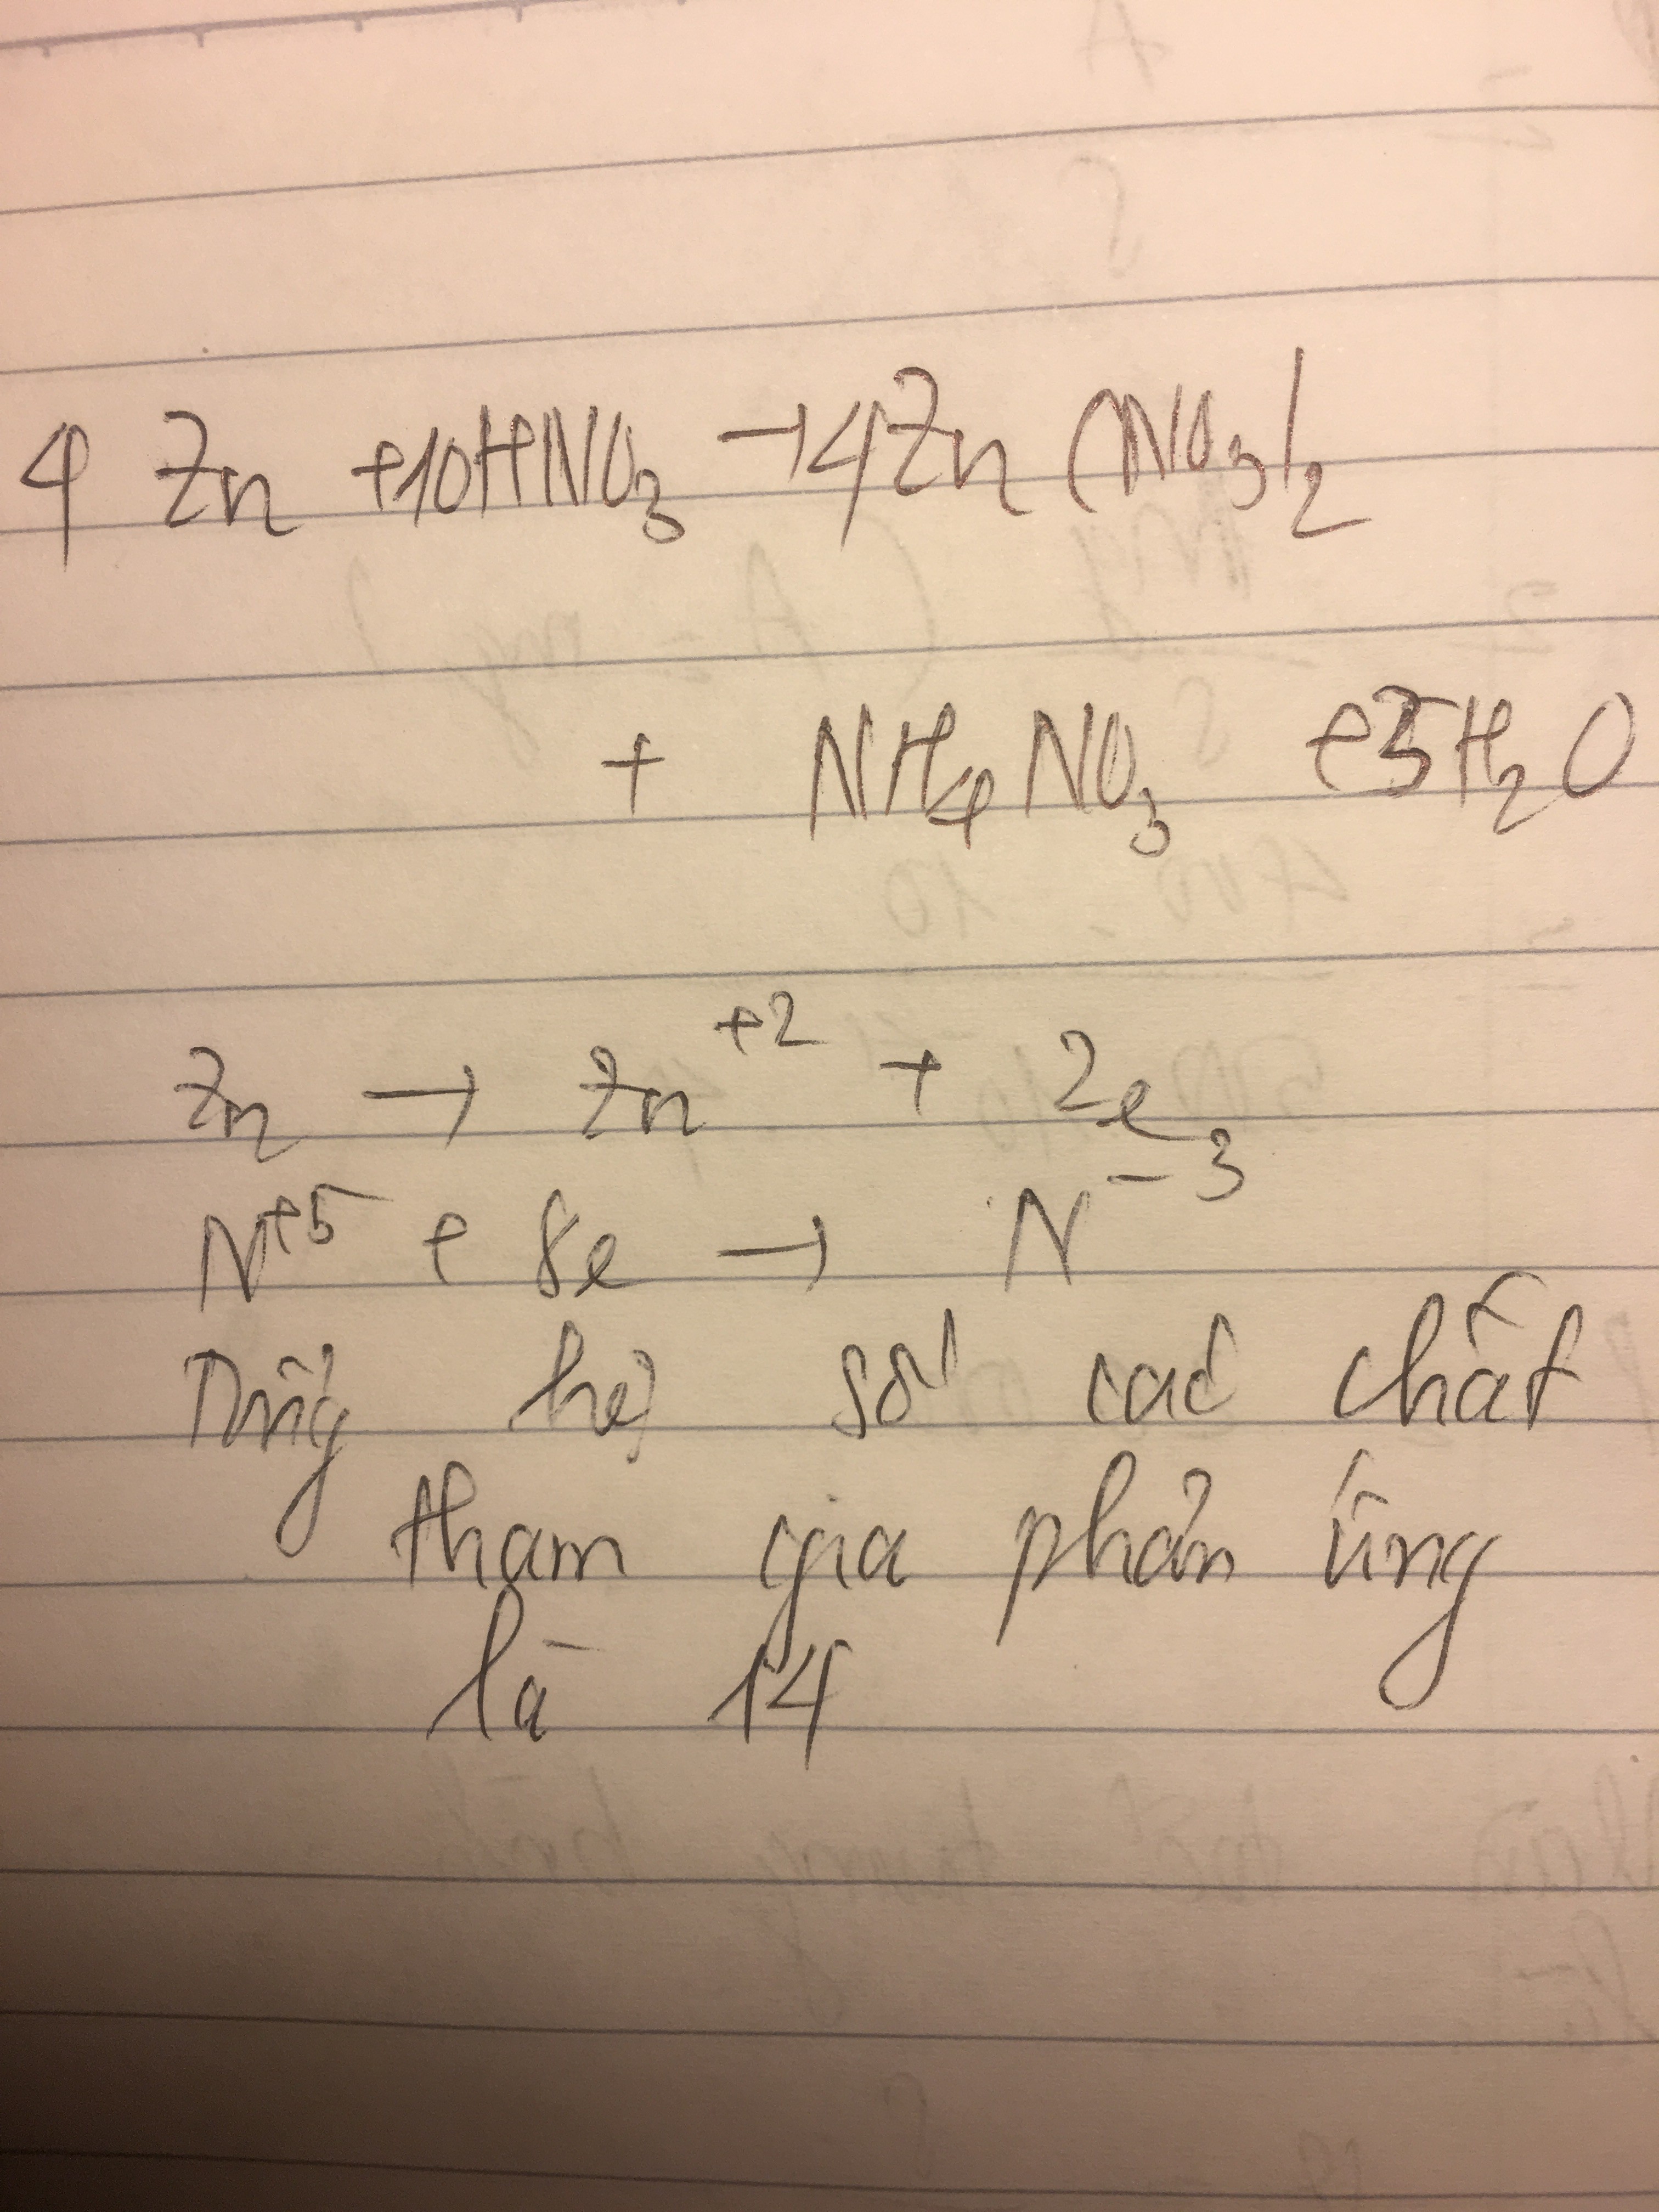 4 Zn +10HNO3 →4Zn (NO3)2
+ NH4NO3 +3H2O
Zn → Zn+2 + 2e
N+5 + 8e → N-3
Tổng hệ số các chất
tham gia phản ứng
là 14